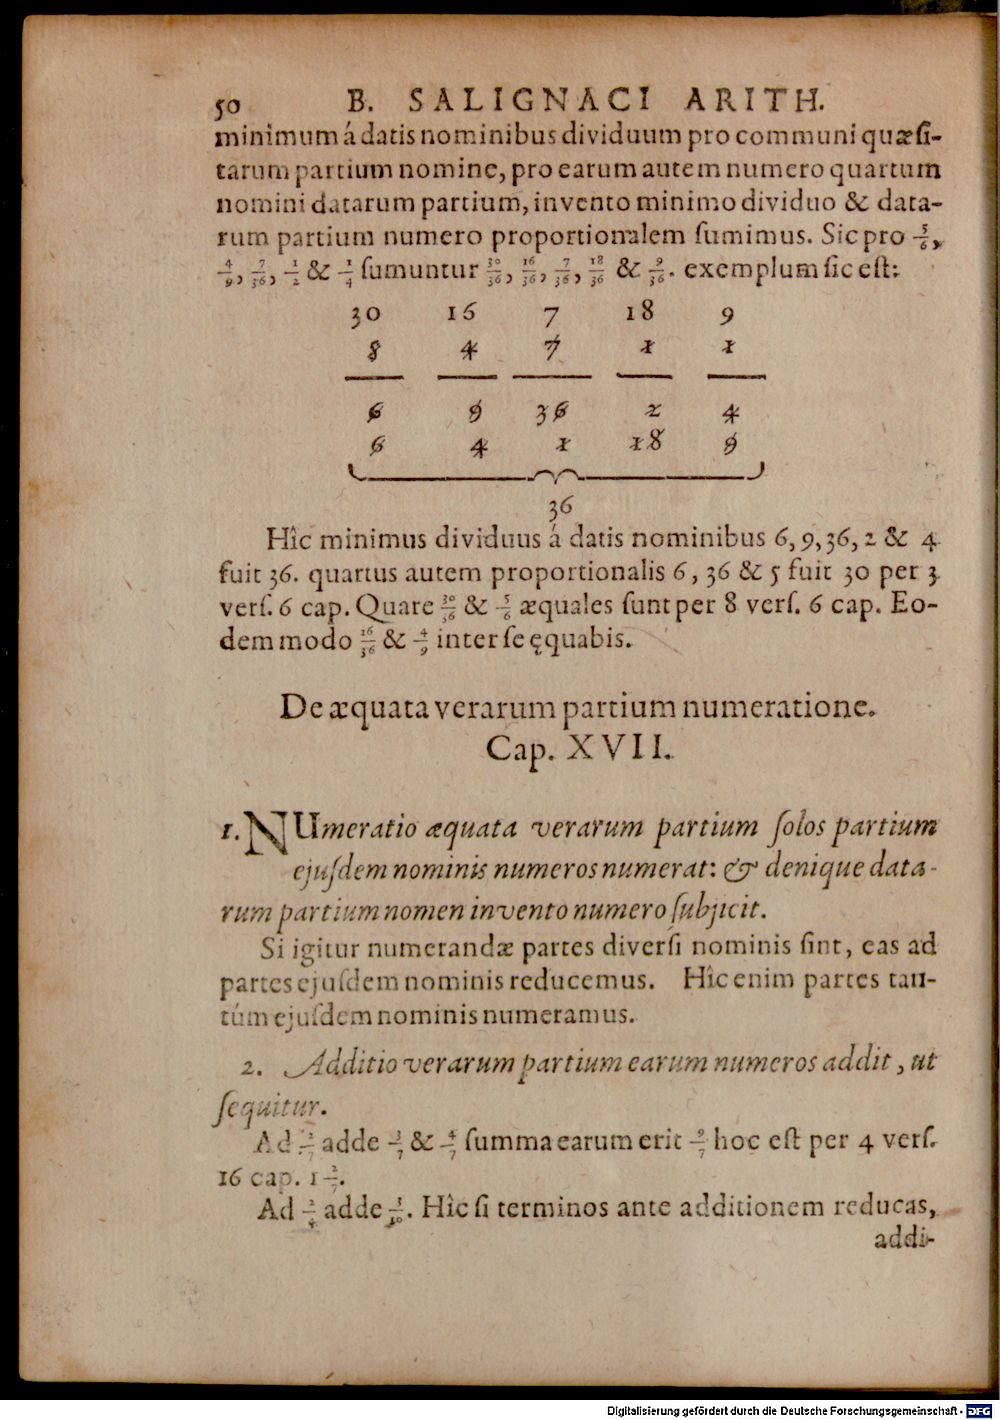 50 B. SALIGNACI ARITH.
minimum á datis nominibus dividuum pro communi quæsi-
tarum partium nomine, pro earum autem numero quartum
nomini datarum partium, invento minimo dividuo & data-
rum partium numero proportionalem sumimus. Sic pro 5/6,
4/9, 7/36, 1/2 & 1/4 sumuntur 30/36, 16/36, 7/36, 18/36 & 9/36. exemplum sic est:
30 16 7 18 9
4 7 1 1
6 9 36 2 4
6 4 1 18 9
36
Hîc minimus dividuus á datis nominibus 6, 9, 36, 2 & 4
fuit 36. quartus autem proportionalis 6, 36 & 5 fuit 30 per 3
vers. 6 cap. Quare 30/36 & 5/6 æquales sunt per 8 vers. 6 cap. Eo-
dem modo 16/36 & 4/9 inter se ęquabis.
De æquata verarum partium numeratione.
Cap. XVII.
1. NUmeratio æquata verarum partium solos partium
ejusdem nominis numeros numerat: & denique data-
rum partium nomen invento numero subjicit.
Si igitur numerandæ partes diversi nominis sint, eas ad
partes ejusdem nominis reducemus. Hîc enim partes tan-
túm ejusdem nominis numeramus.
2. Additio verarum partium earum numeros addit, ut
sequitur.
Ad 2/7 adde 3/7 & 4/7 summa earum erit 9/7 hoc est per 4 vers.
16 cap. 1 2/7.
Ad adde . Hîc si terminos ante additionem reducas,
addi-
Digitalisierung gefördert durch die Deutsche Forschungsgemeinschaft - DFG